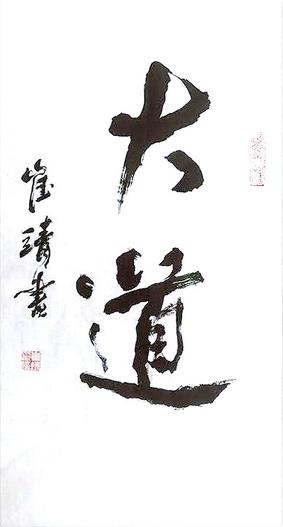 大道
崔靖書